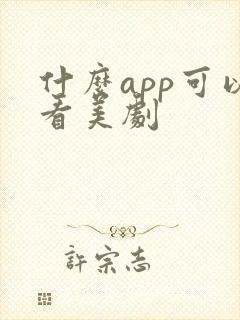 什麽app可以
看美劇
許宗志